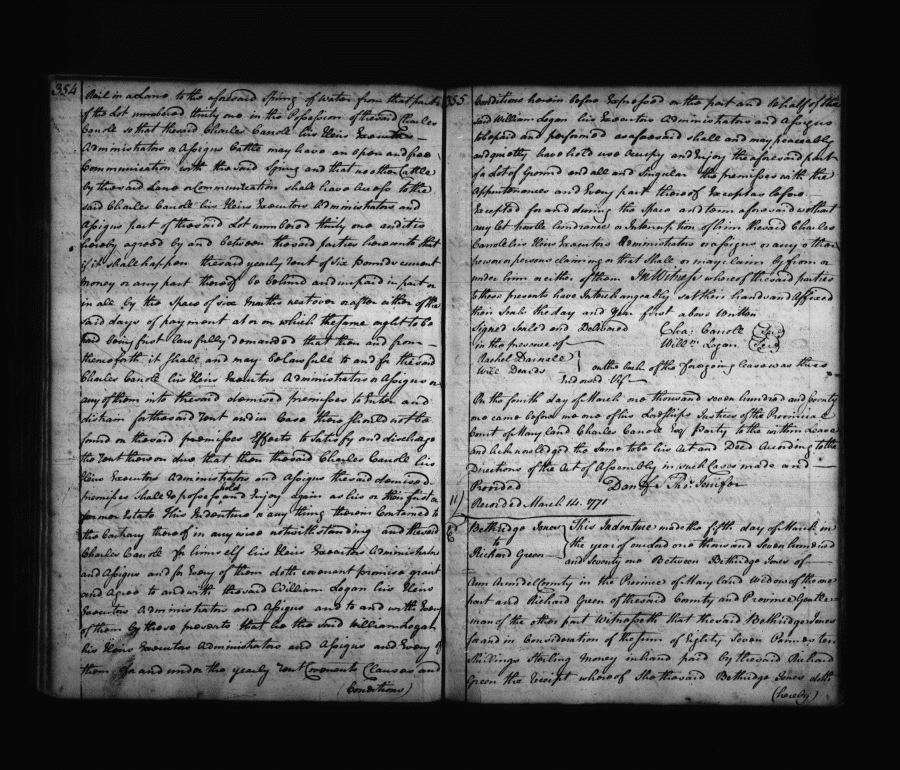 354
Rail in a Lane to the aforesaid Spring of Water from that part
of the Lot numbered thirty one in the Possession of the said Charles
Carroll so that the said Charles Carroll his Heirs Executors
Administrators or Assigns Cattle may have an open and free
Communication with the said Spring and that no other Cattle
by the said Lane or Communication shall have Access to the
said Charles Carroll his Heirs Executors Administrators and
Assigns part of the said Lot numbered thirty one and it is
hereby agreed by and between the said parties hereunto that
if it shall happen the said yearly Rent of Six Pounds current
money or any part thereof be behind and unpaid in part or
in all by the Space of six Months next over or after either of the
said days of payment at or on which the same ought to be
had being first lawfully demanded that then and from
thenceforth it shall and may be lawfull to and for the said
Charles Carroll his Heirs Executors Administrators or Assigns or
any of them into the said demised premisses to Enter and
distrain for the said Rent and in Case there should not be
found on the said premisses Effects to Satisfy and discharge
the Rent thereon due that then the said Charles Carroll his
Heirs Executors Administrators and Assigns the said demised
premisses shall hold possess and Enjoy again as his or their first or
former Estate this Indenture or any thing therein Contained to
the Contrary thereof in any wise notwithstanding and the said
Charles Carroll for himself his Heirs Executors Administrators
and Assigns and for Every of them doth covenant promise grant
and Agree to and with the said William Logan his Heirs
Executors Administrators and Assigns and to and with Every
of them by these presents that he the said William Logan
his Heirs Executors Administrators and Assigns and Every of
them for and under the yearly Rent Covenants Clauses and
Conditions)
355
Conditions herein before Expressed on the part and behalf of the
said William Logan his Executors Administrators and Assigns
to be paid and performed as aforesaid shall and may peaceably
and quietly have hold use Occupy and Enjoy the aforesaid part
of a Lot of Ground and all and Singular the premisses with the
Appurtenances and Every part thereof Except as before
Excepted for and during the Space and term aforesaid without
any let trouble hindrance or Interruption of him the said Charles
Carroll his Heirs Executors Administrators or Assigns or any other
person or persons claiming or that shall or may claim by from or
under him or either of them In Witness whereof the said parties
to these presents have Interchangeably set their hands and Affixed
their Seals the day and Year first above written
Signed Sealed and Delivered
in the presence of
Rachel Darnall
Will Deards
Cha: Carroll Seal
Willm Logan Seal
on the back of the foregoing Lease was thus
Indorsed Viz
On the fourth day of March one thousand seven hundred and seventy
one came before me one of his Lordships Justices of the Provincial
Court of Maryland Charles Carroll Esq Party to the within Lease
and Acknowledged the same to be his Act and Deed According to the
Directions of the Act of Assembly in such Cases made and
Provided
Danl of St Thos Jenifer
Recorded March 14. 1771
Bethridge Jones
to
Richard Green
This Indenture made the fifth day of March in
the year of our Lord one thousand Seven hundred
and Seventy one Between Bethridge Jones of
Ann Arundel County in the Province of Maryland Widow of the one
part and Richard Green of the said County and Province Gentle-
man of the other part Witnesseth that the said Bethridge Jones
for and in Consideration of the sum of Eighty Seven Pounds ten
Shillings Sterling money in hand paid by the said Richard
Green the receipt whereof She the said Bethridge Jones doth
(hereby)